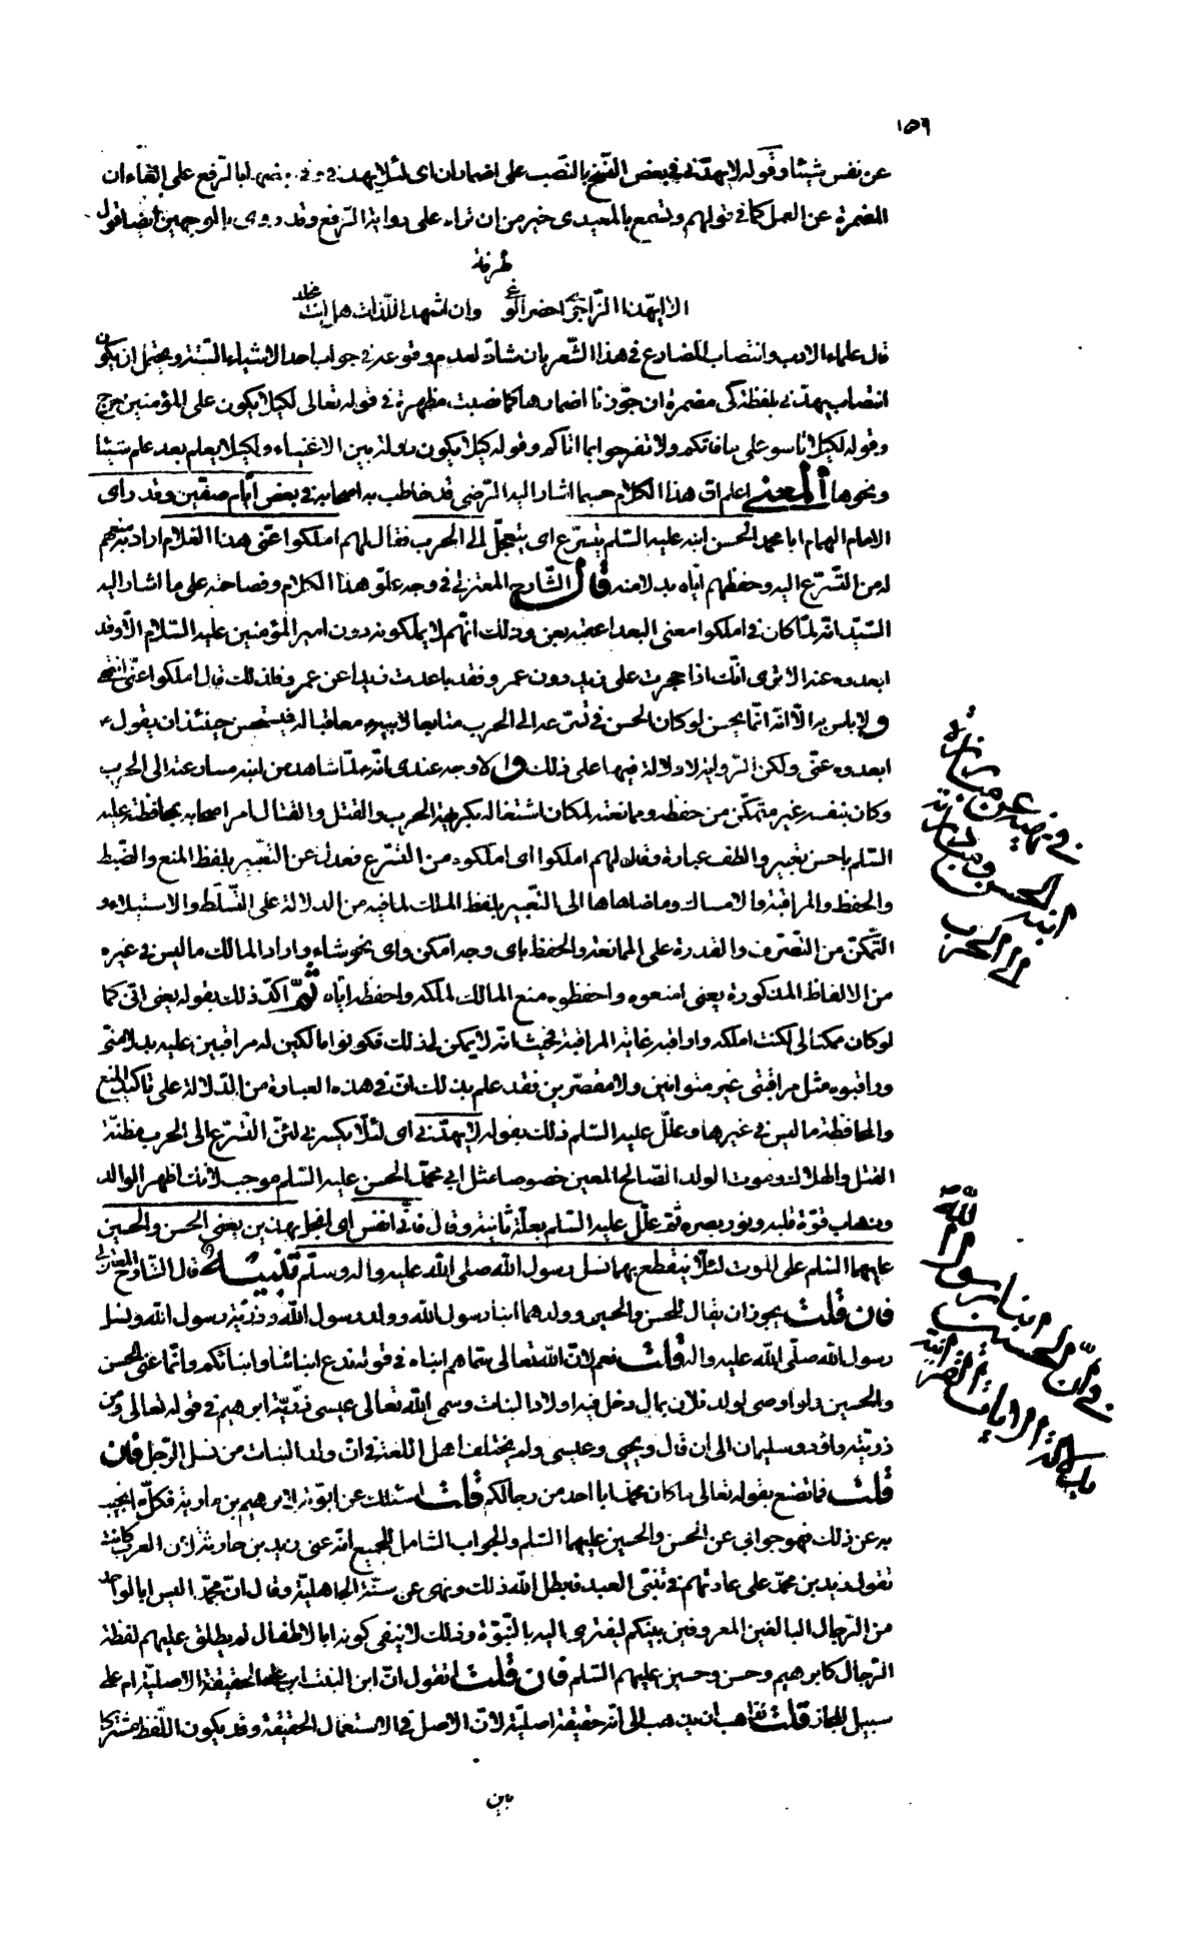 ١٥٦
عن نفس شيئا وقوله لا يهدّني في بعض النّسخ بالنّصب على اضمار ان اى لئلا يهدّني وفي بعضها بالرّفع على الغاء ان
المضمرة عن العمل كما في قولهم وتسمع بالمعيدى خير من ان تراه على رواية الرّفع وقد روى بالوجهين ايضا قول
طرفة
الا ايّهذا الزّاجري احضر الوغى وان اشهد اللّذات هل انت مخلد
قال علماء الادب وانتصاب المضارع في هذا الشّعر بان شاذّ لعدم وقوعه في جواب احد الاشياء السّتة ويحتمل ان يكون
انتصاب يهدّني بلفظة كى مضمرة ان جوّزنا اضمارها كما نصبت مظهرة في قوله تعالى لكيلا يكون على المؤمنين حرج
وقوله لكيلا تاسوا على ما فاتكم ولا تفرحوا بما اتاكم وقوله كيلا يكون دولة بين الاغنياء ولكيلا يعلم بعد علم شيئا
ونحوها المعنى اعلم انّ هذا الكلام حسبما اشار اليه الرّضي قد خاطب به اصحابه في بعض ايّام صفّين وقد راى
الامام الهمام ابا محمد الحسن ابنه عليه السّلم يتسرّع اى يتعجّل الى الحرب فقال لهم املكوا عنّى هذا الغلام اراد به منعهم
له من التّسرّع اليه وحفظهم ايّاه بدلا منه قال الشّارح المعتزلي في وجه علوّ هذا الكلام وفصاحته على ما اشار اليه
السّيّد انّه لمّا كان في املكوا معنى البعد اعقبه بعن وذلك انّهم لا يملكونه دون امير المؤمنين عليه السّلام الّا وقد
ابعدوه عنه الا ترى انّك اذا حجرت على زيد دون عمرو فقد باعدت زيدا عن عمرو فلذلك قال املكوا عنّى انتهى
ولا باس به الّا انّه انّما يحسن لو كان الحسن في تسرّعه الى الحرب متابعا لابيه معاقبا له فيستحسن حينئذ ان يقول
ابعدوه عنّى ولكن الرّواية لا دلالة فيها على ذلك والاوجه عندى انّه لمّا شاهد من ابنه مسارعته الى الحرب
وكان بنفسه غير متمكّن من حفظه وممانعته لمكان اشتغاله بكريهة الحرب والقتل والقتال امر اصحابه بمحافظته عليه
السّلم باحسن تعبير والطف عبارة وقال لهم املكوا اى املكوه من التّسرّع فعدل عن التّعبير بلفظ المنع والضّبط
والحفظ والمراقبة والامساك وما ضاهاها الى التّعبير بلفظ الملك لما فيه من الدلالة على التّسلّط والاستيلاء و
التّمكّن من التّصرّف والقدرة على الممانعة والحفظ باى وجه امكن واى نحو شاء واراد المالك ما ليس في غيره
من الالفاظ المذكورة يعنى امنعوه واحفظوه منع المالك لملكه واحفظه ايّاه ثمّ اكّد ذلك بقوله يعنى انّى كما
لو كان ممكنا لى لكنت املكه واراقبه غاية المراقبة فحيث انّه لا يمكن لى ذلك فكونوا مالكين له مراقبين عليه بدلا منّى
وراقبوه مثل مراقبتى غير متوانين ولا مقصّرين فقد علم بذلك انّ في هذه العبارة من الدّلالة على تاكيد المنع
والمحافظة ما ليس في غيرها وعلّل عليه السّلم ذلك بقوله لا يهدّني اى لئلا يكسرني لئنّ التّسرّع الى الحرب مظنّة
القتل والهلاك وموت الولد الصّالح المعين خصوصا مثل ابي محمّد الحسن عليه السّلم موجب لانكسار ظهر الوالد
وذهاب قوّة قلبه ونور بصره ثمّ علّل عليه السّلم بعلّة ثانية وقال فانّى انفس اى ابخل بهذين يعنى الحسن والحسين
عليهما السّلم على الموت لئلّا ينقطع بهما نسل رسول الله صلى الله عليه واله وسلّم تنبيه قال الشّارح المعتزلي
فان قلت يجوز ان يقال للحسن والحسين وولدهما ابناء رسول الله وولد رسول الله وذرّيّة رسول الله ونسل
رسول الله صلّى الله عليه واله قلت نعم لانّ الله تعالى سمّاهم ابناءه في قوله ندع ابنائنا وابنائكم وانّما عنى الحسن
والحسين ولو اوصى لولد فلان بمال دخل فيه اولاد البنات وسمّى الله تعالى عيسى ذرّيّة ابرهيم في قوله تعالى ومن
ذرّيّته داود وسليمان الى ان قال ويحيى وعيسى ولم يختلف اهل اللّغة في انّ ولد البنات من نسل الرّجل فان
قلت فما تصنع بقوله تعالى ما كان محمّد ابا احد من رجالكم قلت اسئلك عن ابوّته لابرهيم بن مارية فكلّما تجيب
به عن ذلك فهو جوابى عن الحسن والحسين عليهما السّلم والجواب الشامل للجميع انّه عنى زيد بن حارثة لانّ العرب كانت
تقول زيد بن محمّد على عادتهم في تبنّى العبيد فابطل الله ذلك ونهى عن سنّة الجاهليّة وقال انّ محمّدا ليس ابا لواحد
من الرّجال البالغين المعروفين بينكم ليعتزى اليه بالنّبوّة وذلك لا ينفى كونه ابا لاطفال لم يطلق عليهم لفظة
الرّجال كابرهيم وحسن وحسين عليهم السّلم فان قلت اتقول انّ ابن البنت ابن على الحقيقة الاصليّة ام على
سبيل المجاز قلت لذاهب ان يذهب الى انّه حقيقة اصليّة لانّ الاصل في الاستعمال الحقيقة وقد يكون اللّفظ مشتركا
بين
في نهيه عن مبارزة
ابنه الحسن ومبادرته
الى الحرب
في انّ الحسنين ابنا رسول الله
بدلالة الايات القرانيّة